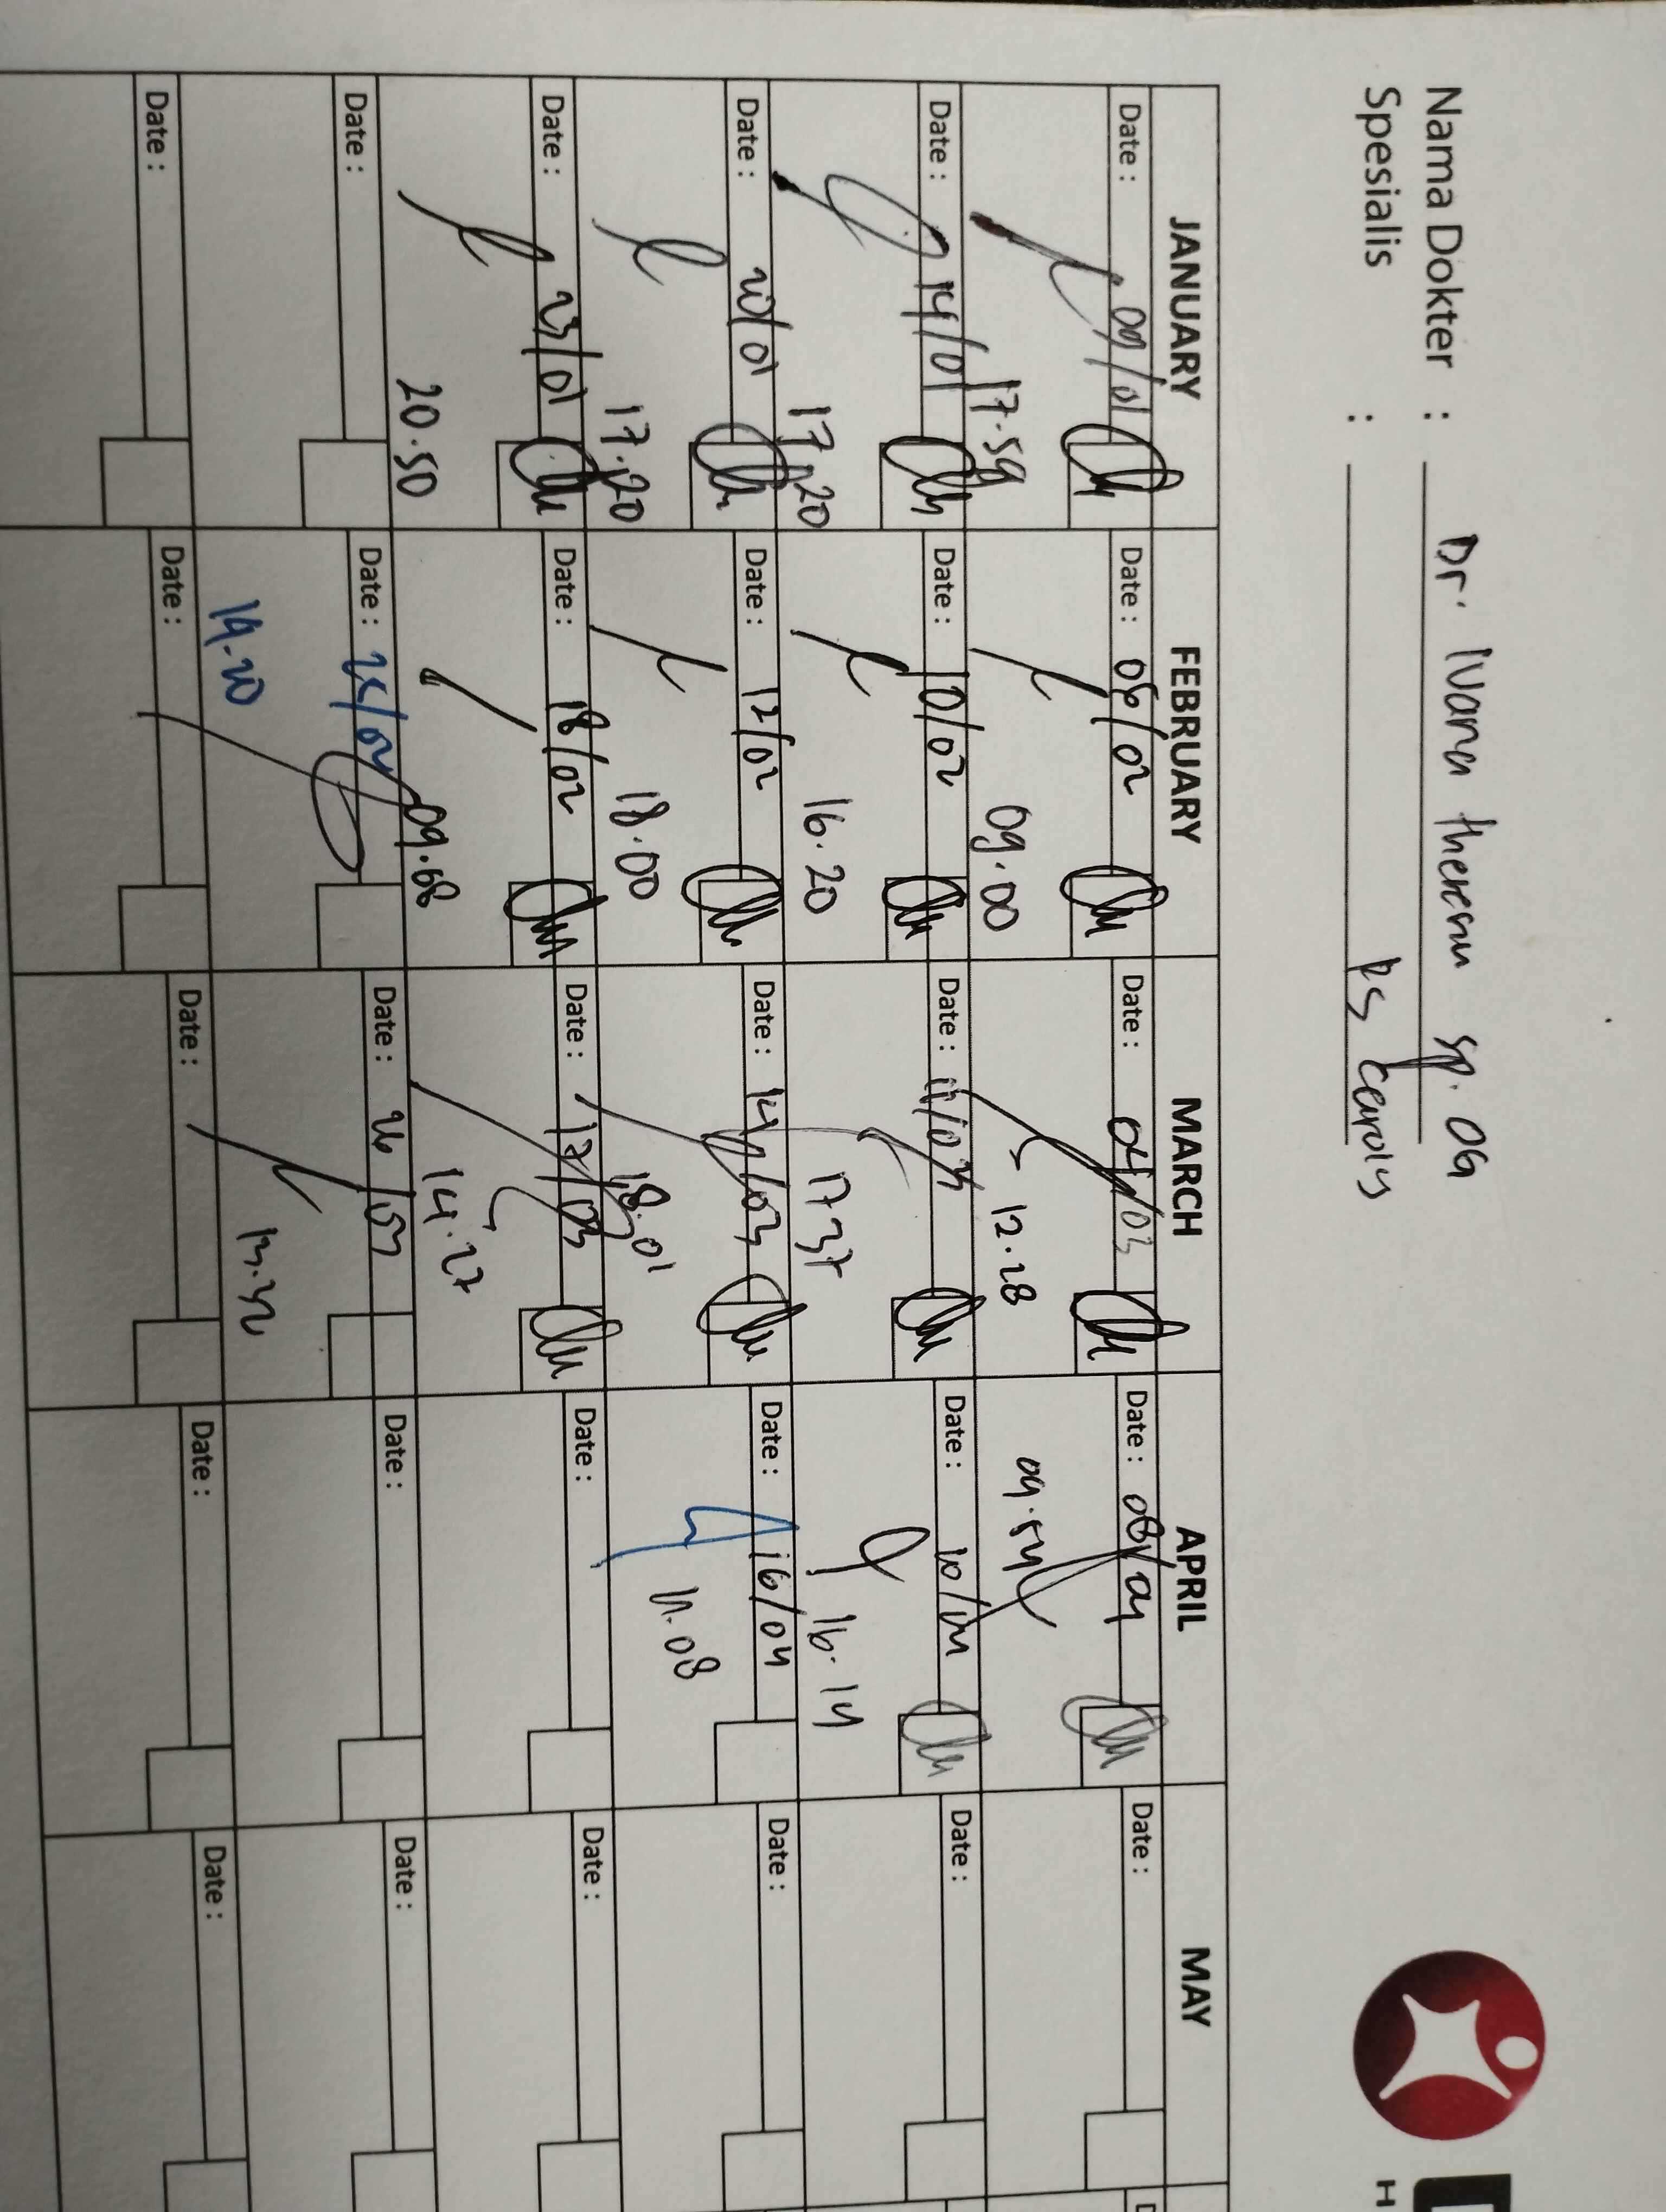 Nama Dokter : Dr. Ivana theresia sp. OG
Spesialis : RS Carolus
JANUARY FEBRUARY MARCH APRIL MAY
Date : 09/01 Date : 06/02 Date : 04/03 Date : 08/04 Date :
17.59 09.00 12.28 09.54
Date : 14/01 Date : 10/02 Date : 11/03 Date : 10/04 Date :
17.20 16.20 17 37 16.14
Date : 20/01 Date : 12/02 Date : 14/03 Date : 16/04 Date :
17.20 18.00 18.01 11.08
Date : 23/01 Date : 18/02 Date : 17/03 Date : Date :
20.50 09.68 14.27
Date : Date : Date : Date : Date :
19.20 13.32
Date : Date : Date : Date : Date :
H